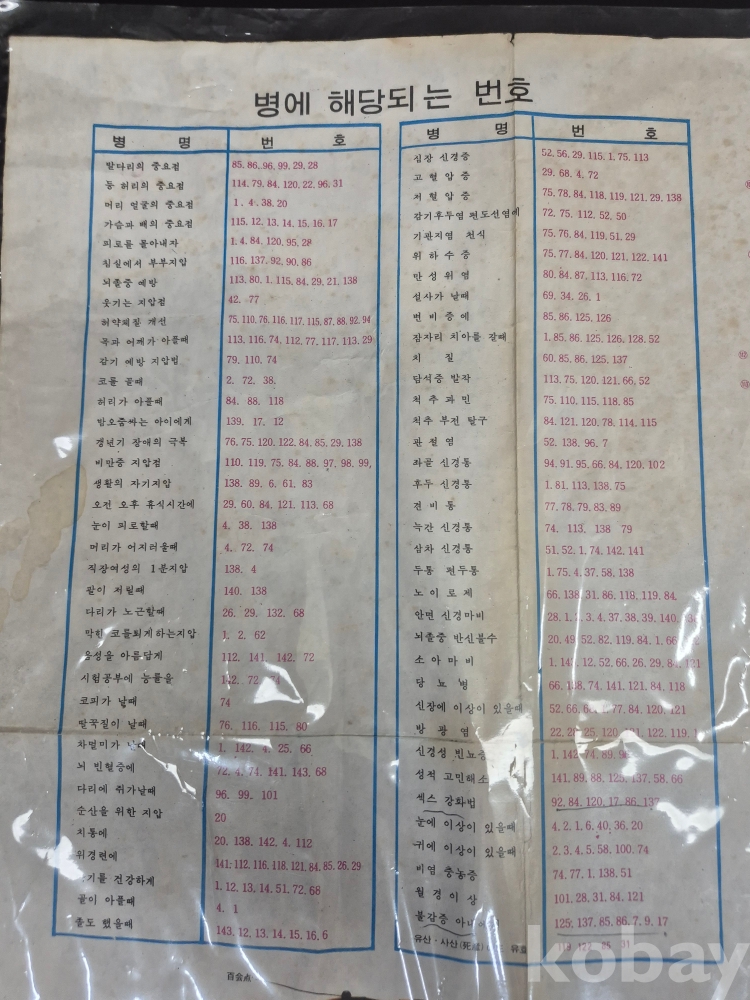 병에 해당되는 번호
병 명 번 호
발다리의 중요점 85. 86. 96. 99. 29. 28
등 허리의 중요점 114. 79. 84. 120. 22. 96. 31
머리 얼굴의 중요점 1. 4. 38. 20
가슴과 배의 중요점 115. 12. 13. 14. 15. 16. 17
피로를 몰아내자 1. 4. 84. 120. 95. 28
침실에서 부부지압 116. 137. 92. 90. 86
뇌졸중 예방 113. 80. 1. 115. 84. 29. 21. 138
웃기는 지압점 42. 77
허약체질 개선 75. 110. 76. 116. 117. 115. 87. 88. 92. 94
목과 어께가 아플때 113. 116. 74. 112. 77. 117. 113. 29
감기 예방 지압법 79. 110. 74
코를 골때 2. 72. 38.
허리가 아플때 84. 88. 118
밤오줌싸는 아이에게 139. 17. 12
갱년기 장애의 극복 76. 75. 120. 122. 84. 85. 29. 138
비만증 지압점 110. 119. 75. 84. 88. 97. 98. 99,
생활의 자기지압 138. 89. 6. 61. 83
오전 오후 휴식시간에 29. 60. 84. 121. 113. 68
눈이 피로할때 4. 38. 138
머리가 어지러울때 4. 72. 74
직장여성의 1분지압 138. 4
팔이 저릴때 140. 138
다리가 노근할때 26. 29. 132. 68
막힌 코를퇴게하는지압 1. 2. 62
음성을 아름답게 112. 141. 142. 72
시험공부에 능률을 142. 72. 74
코피가 날때 74
딸꾹질이 날때 76. 116. 115. 80
차멀미가 날때 1. 142. 4. 25. 66
뇌 빈혈증에 72. 4. 74. 141. 143. 68
다리에 쥐가날때 96. 99. 101
순산을 위한 지압 20
치통에 20. 138. 142. 4. 112
위경련에 141. 112. 116. 118. 121. 84. 85. 26. 29
건강하게 1. 12. 13. 14. 51. 72. 68
골이 아플때 4. 1
졸도 했을때 143. 12. 13. 14. 15. 16. 6
百会点
병 명 번 호
심장 신경증 52. 56. 29. 115. 1. 75. 113
고 혈 압 증 29. 68. 4. 72
저 혈 압 증 75. 78. 84. 118. 119. 121. 29. 138
감기후두염 편도선염에 72. 75. 112. 52. 50
기관지염 천식 75. 76. 84. 119. 51. 29
위 하 수 증 75. 77. 84. 120. 121. 122. 141
만 성 위 염 80. 84. 87. 113. 116. 72
설사가 날때 69. 34. 26. 1
변 비 증 에 85. 86. 125. 126
잠자리 치아를 갈때 1. 85. 86. 125. 126. 128. 52
치 질 60. 85. 86. 125. 137
담석증 발작 113. 75. 120. 121. 66. 52
척 추 과 민 75. 110. 115. 118. 85
척추 부전 탈구 84. 121. 120. 78. 114. 115
관 절 염 52. 138. 96. 7
좌골 신경통 94. 91. 95. 66. 84. 120. 102
후두 신경통 1. 81. 113. 138. 75
견 비 통 77. 78. 79. 83. 89
늑간 신경통 74. 113. 138 79
삼차 신경통 51. 52. 1. 74. 142. 141
두통 편두통 1. 75. 4. 37. 58. 138
노 이 로 제 66. 138. 31. 86. 118. 119. 84.
안면 신경마비 28. 1. 2. 3. 4. 37. 38. 39. 140.
뇌졸중 반신불수 20. 49. 52. 82. 119. 84. 1. 66
소 아 마 비 1. 12. 52. 66. 26. 29. 84. 121
당 뇨 병 66. 138. 74. 141. 121. 84. 118
신장에 이상이 있을때 52. 66. 77. 84. 120. 121
방 광 염 22. 25. 120. 122. 119.
신경성 빈뇨증 1. 142. 74. 89.
성적 고민해소 141. 89. 88. 137. 58. 66
섹스 강화법 92. 84. 120. 17. 86. 137
눈에 이상이 있을때 4. 2. 1. 6. 40. 36. 20
귀에 이상이 있을때 2. 3. 4. 5. 58. 100. 74
비염 충농증 74. 77. 1. 138. 51
월 경 이 상 101. 28. 31. 84. 121
불감증 125. 137. 85. 86. 7. 9. 17
유산·사산 31
kobay